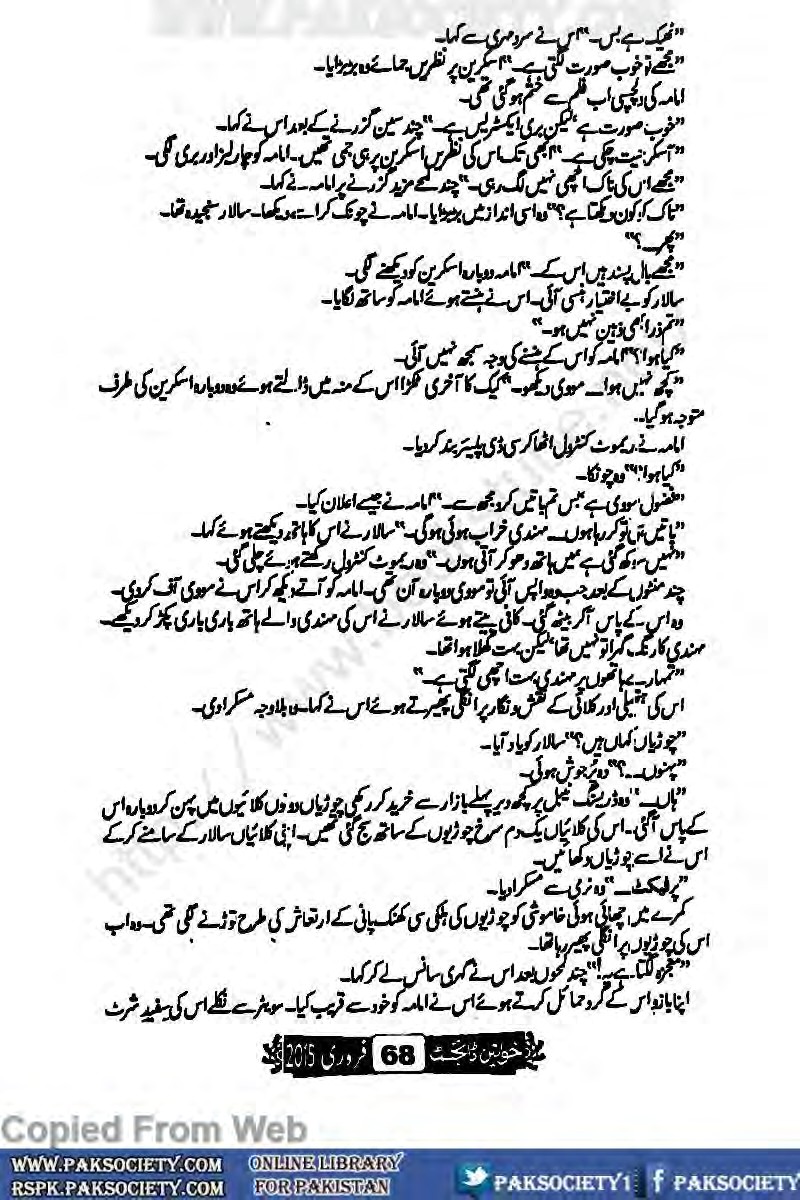 WWW.PAKSOCIETY.COM
"ٹھیک ہے بس۔" اس نے سرد مہری سے کہا۔
"مجھے تو خوب صورت لگتی ہے۔" اسکرین پر نظریں جمائے وہ بڑبڑایا۔
امامہ کی دلچسپی اب فلم سے ختم ہو گئی تھی۔
"خوب صورت ہے، لیکن بری ایکٹریس ہے۔" چند سین گزرنے کے بعد اس نے کہا۔
"آسکر جیت چکی ہے۔" ابھی تک اس کی نظریں اسکرین پر ہی جمی تھیں۔ امامہ کو چارلیز اور بری لگی۔
"مجھے اس کی ناک اچھی نہیں لگ رہی۔" چند لمحے مزید گزرنے پر امامہ نے کہا۔
"ناک کو کون دیکھتا ہے؟" وہ اسی انداز میں بڑبڑایا۔ امامہ نے چونک کر اسے دیکھا۔ سالار سنجیدہ تھا۔
"پھر۔۔۔؟"
"مجھے بال پسند ہیں اس کے۔" امامہ دوبارہ اسکرین کو دیکھنے لگی۔
سالار کو بے اختیار ہنسی آئی۔ اس نے ہنستے ہوئے امامہ کو ساتھ لگایا۔
"تم ذرا بھی ذہین نہیں ہو۔"
"کیا ہوا؟" امامہ کو اس کے ہنسنے کی وجہ سمجھ نہیں آئی۔
"کچھ نہیں ہوا۔۔۔ مووی دیکھو۔" کیک کا آخری ٹکڑا اس کے منہ میں ڈالتے ہوئے وہ دوبارہ اسکرین کی طرف
متوجہ ہو گیا۔
امامہ نے ریموٹ کنٹرول اٹھا کر سی ڈی پلیئر بند کر دیا۔
"کیا ہوا؟" وہ چونکا۔
"فضول مووی ہے بس تم باتیں کرو مجھ سے۔" امامہ نے جیسے اعلان کیا۔
"باتیں ہی تو کر رہا ہوں۔۔۔ مہندی خراب ہوئی ہو گی۔" سالار نے اس کا ہاتھ دیکھتے ہوئے کہا۔
"نہیں سوکھ گئی ہے میں ہاتھ دھو کر آتی ہوں۔" وہ ریموٹ کنٹرول رکھتے ہوئے چلی گئی۔
چند منٹوں کے بعد جب وہ واپس آئی تو مووی دوبارہ آن تھی۔ امامہ کو آتے دیکھ کر اس نے مووی آف کر دی۔
وہ اس کے پاس آ کر بیٹھ گئی۔ کافی پیتے ہوئے سالار نے اس کی مہندی والے ہاتھ باری باری پکڑ کر دیکھے۔
مہندی کا رنگ گہرا تو نہیں تھا، لیکن بہت کھلا ہوا تھا۔
"تمہارے ہاتھوں پر مہندی بہت اچھی لگتی ہے۔"
اس کی ہتھیلی اور کلائی کے نقش و نگار پر انگلی پھیرتے ہوئے اس نے کہا۔ وہ بلاوجہ مسکرا دی۔
"چوڑیاں کہاں ہیں؟" سالار کو یاد آیا۔
"پہنوں۔۔۔؟" وہ پُرجوش ہوئی۔
"ہاں۔۔۔" وہ ڈریسنگ ٹیبل پر کچھ دیر پہلے بازار سے خرید کر رکھی چوڑیاں دونوں کلائیوں میں پہن کر دوبارہ اس
کے پاس آ گئی۔ اس کی کلائیاں یک دم سرخ چوڑیوں کے ساتھ سج گئی تھیں۔ اپنی کلائیاں سالار کے سامنے کر کے
اس نے اسے چوڑیاں دکھائیں۔
"پرفیکٹ۔۔۔" وہ نرمی سے مسکرا دیا۔
کمرے میں چھائی ہوئی خاموشی کو چوڑیوں کی ہلکی سی کھنک پانی کے ارتعاش کی طرح توڑنے لگی تھی۔ وہ اب
اس کی چوڑیوں پر انگلی پھیر رہا تھا۔
"معجزہ لگتا ہے یہ!" چند لمحوں بعد اس نے گہری سانس لے کر کہا۔
اپنا بازو اس کے گرد حمائل کرتے ہوئے اس نے امامہ کو خود سے قریب کیا۔ سویٹر سے نکلے اس کی سفید شرٹ
خواتین ڈائجسٹ 68 فروری 2015
Copied From Web
WWW.PAKSOCIETY.COM ONLINE LIBRARY PAKSOCIETY1 PAKSOCIETY
RSPK.PAKSOCIETY.COM FOR PAKISTAN